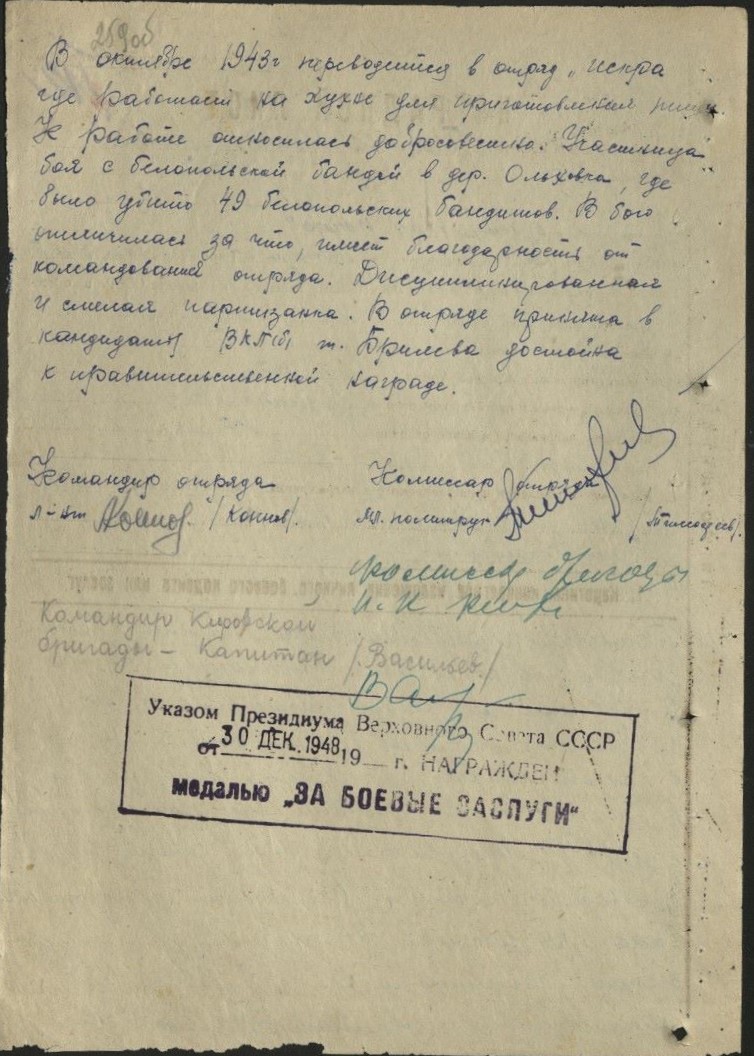 259об
В октябре 1943г переводится в отряд „Искра
где работает на кухне для приготовления пищи.
К работе относилась добросовестно. Участница
боя с белопольской бандой в дер. Ольховка, где
было убито 49 белопольских бандитов. В бою
отличилась за что, имеет благодарность от
командования отряда. Дисциплинированная
и смелая партизанка. В отряде принята в
кандидаты ВКП(б) т. Брилева достойна
к правительственной награде.
Командир отряда
л-нт /Коннов/.
Комиссар отряда
мл. политрук /Тимофеев/.
комиссар бригады
Командир Кировской
бригады – Капитан /Васильев./
Указом Президиума Верховного Совета СССР
от 30 ДЕК. 1948 19 г. НАГРАЖДЕН
медалью „ЗА БОЕВЫЕ ЗАСЛУГИ“